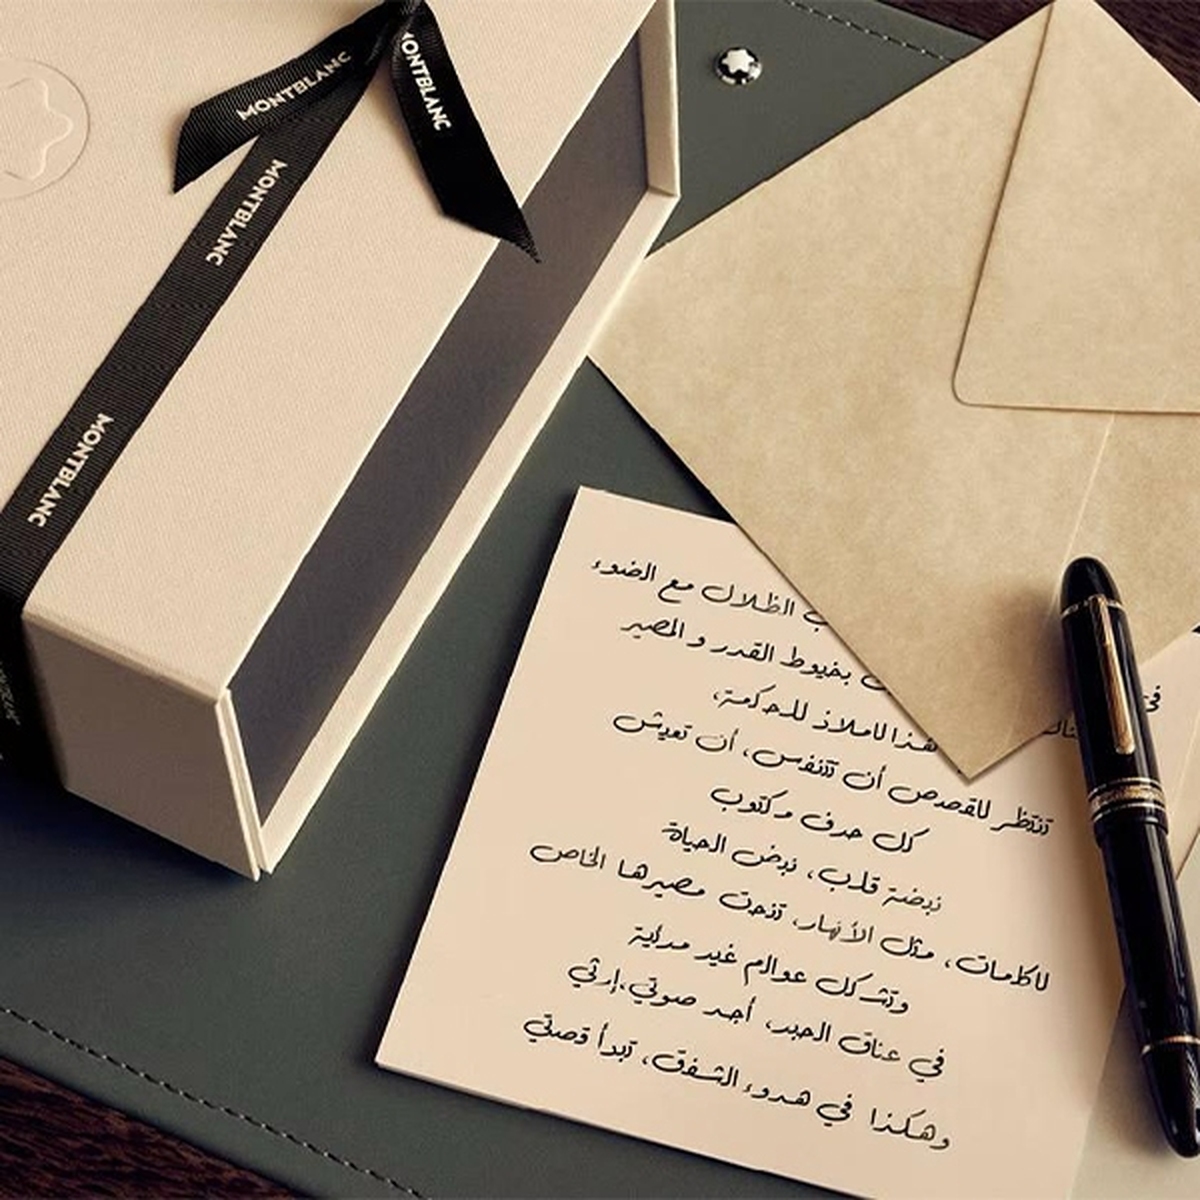 MONTBLANC
MONTBLANC
MONTBLANC
MONTBLANC
الظلال مع الضوء
بخيوط القدر و المصير
هذا لاملاذ للحكمة،
تنتظر للقصص أن تتنفس، أن تعيش
كل حرف مكتوب
نبضة قلب، نبض الحياة
لاكلمات، مثل الأنهار، تنحت مصيرها الخاص
وتشكل عوالم غير مرئية
في عناق الحبر، أجد صوتي،إرثي
وهكذا في هدوء الشفق، تبدأ قصتي